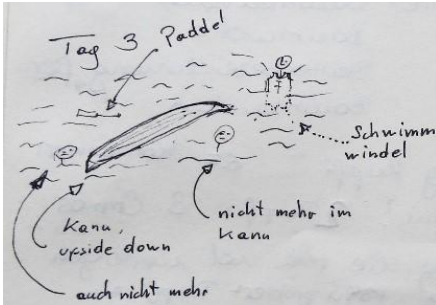 Tag 3
Paddel
Schwimm
windel
nicht mehr im
Kanu
Kanu,
upside down
auch nicht mehr